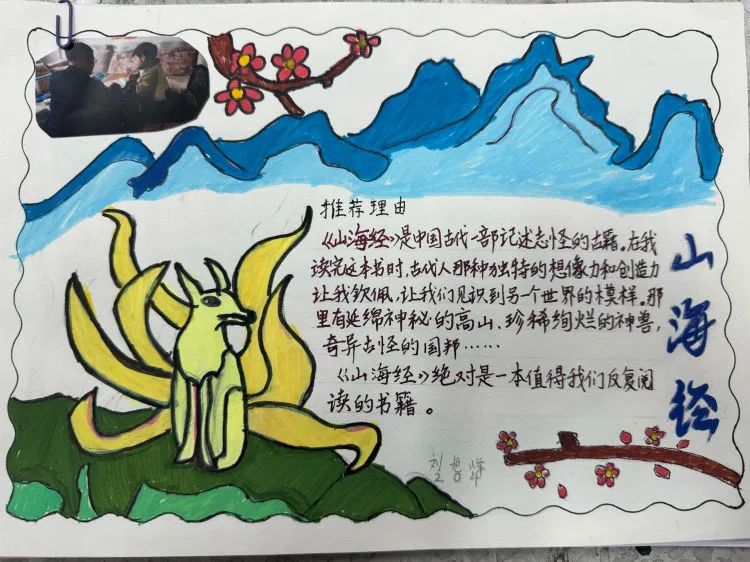 推荐理由
《山海经》是中国古代一部记述志怪的古籍。在我
读完这本书时,古代人那种独特的想像力和创造力
让我钦佩,让我们见识到另一个世界的模样。那
里有延绵神秘的高山、珍稀绚烂的神兽,
奇异古怪的国邦……
《山海经》绝对是一本值得我们反复阅
读的书籍。
山海经
刘旭峰
204